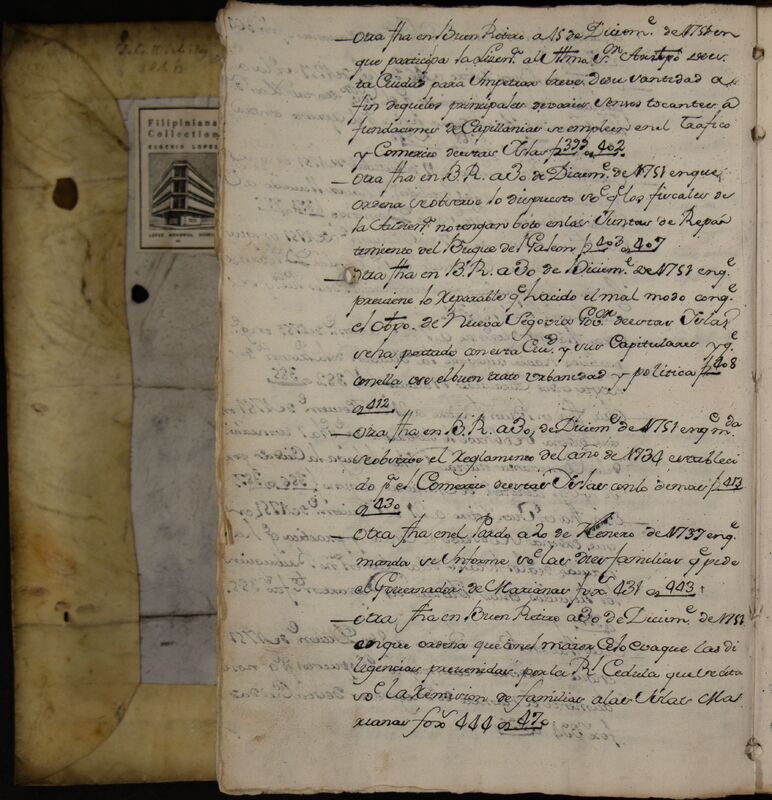 Filipiniana
Collection
EUGENIO LOPEZ
LOPEZ MEMORIAL MUSEUM
_Otra fha en Buen Retiro a 15 de Diciem.e de 1751 en
que participa la licen.a al Illmo S.or Arzpõ de es
ta Ciudad para Impetrar breve de su Santidad a
fin de que los principales de varios Censos tocantes a
fundaciones de Capellanias se empleen en el Trafico
y Comercio de estas Islas f 393 a 402
_Otra fha en B. R. a 30 de Diciem.e de 1751 en que
ordena se observe lo dispuesto so.e q.e los fiscales de
la Audien.a no tengan boto en las Juntas de Repar
timiento del Buque del Galeon f 403 a 407
_Otra fha en B. R. a 30 de Diciem.e de 1751 en q.e
previene lo reparable q.e ha sido el mal modo con q.e
el Obpo. de Nueva Segovia Gov.or de estas Islas
se ha portado con esta Ciu.d y sus Capitulares y q.e
con ella use el buen trato urbanidad y politica f 408
a 412
_Otra fha en B. R. a 30, de Diciem.e de 1751 en q.e m.da
se observe el Reglamento del año de 1734 estableci
do p.a el Comercio de estas Islas con lo demas f 413
a 430
_Otra fha en el Pardo a 20 de Henero de 1737 en q.e
manda se Informe so.e las dies familias q.e pide
el Governador de Marianas fox.s 431 a 443
_Otra fha en Buen Retiro a 30 de Diciem.e de 1751
en que ordena que con el maior Celo evaque las di
ligencias prevenidas por la R.l Cedula que se cita
so.e la remision de familias a las Islas Ma
rianas fox.s 444 a 470